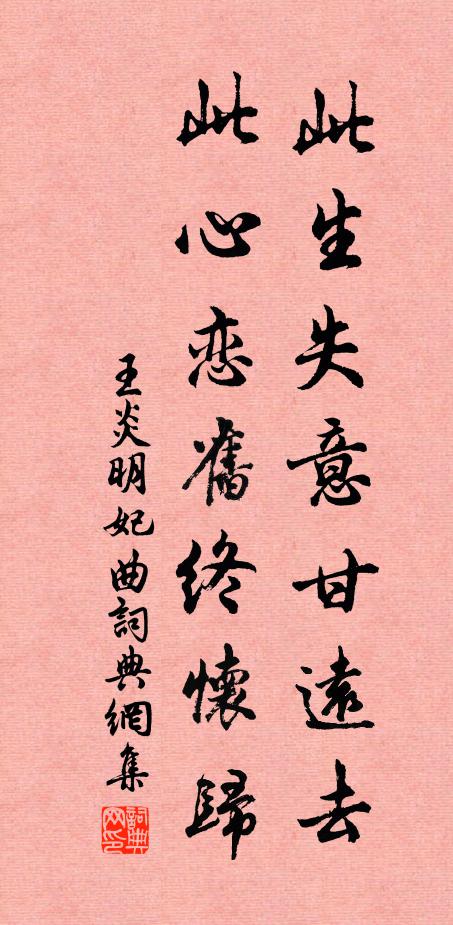 此生失意甘遠去
此心恋舊终懷歸
王炎明妃曲詞典網集
詞典网印